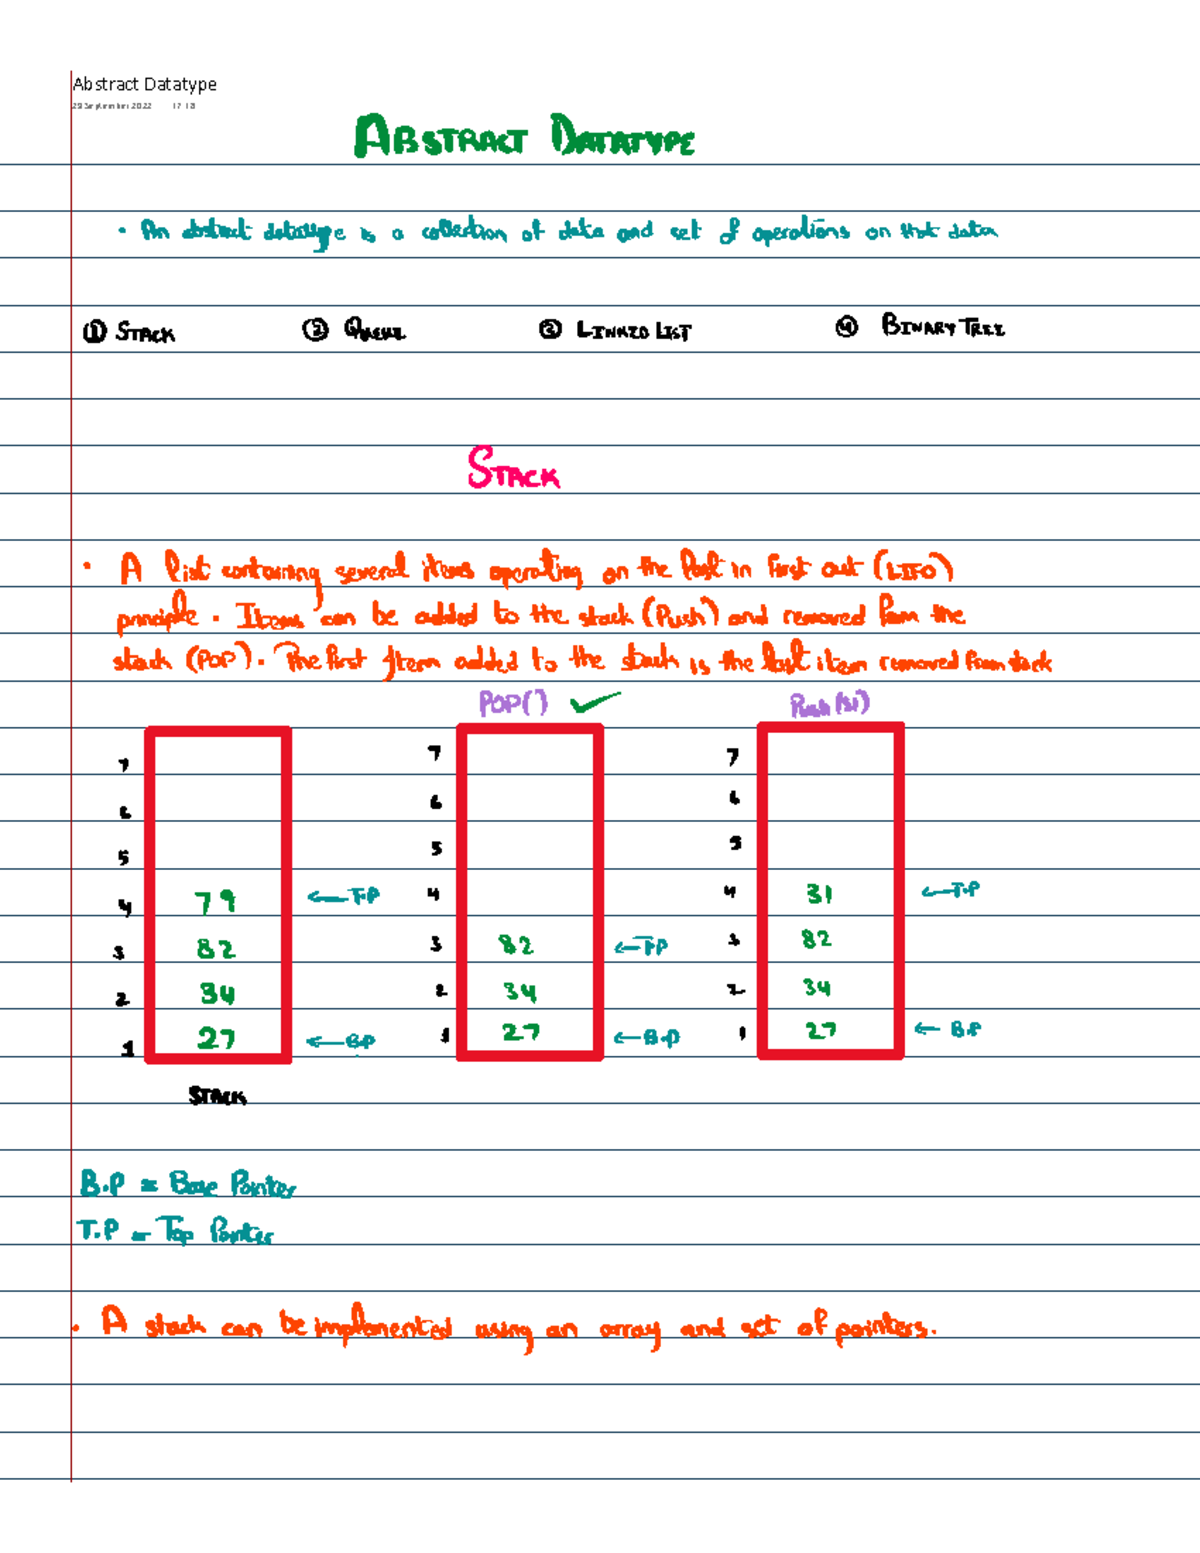 Abstract Datatype
29 September 2022 17:18
ABSTRACT DATATYPE
• An abstract datatype is a collection of data and set of operations on that data
① STACK ② QUEUE ③ LINKED LIST ④ BINARY TREE
STACK
• A list containing several items operating on the last in first out (LIFO)
principle. Items can be added to the stack (Push) and removed from the
stack (POP). The first item added to the stack is the last item removed from stack
POP() ✓ Push(31)
7 7 7
6 6 6
5 5 5
4 79 ← T.P 4 4 31 ← T.P
3 82 3 82 ← T.P 3 82
2 34 2 34 2 34
1 27 ← B.P 1 27 ← B.P 1 27 ← B.P
STACK
B.P = Base Pointer
T.P = Top Pointer
• A stack can be implemented using an array and set of pointers.